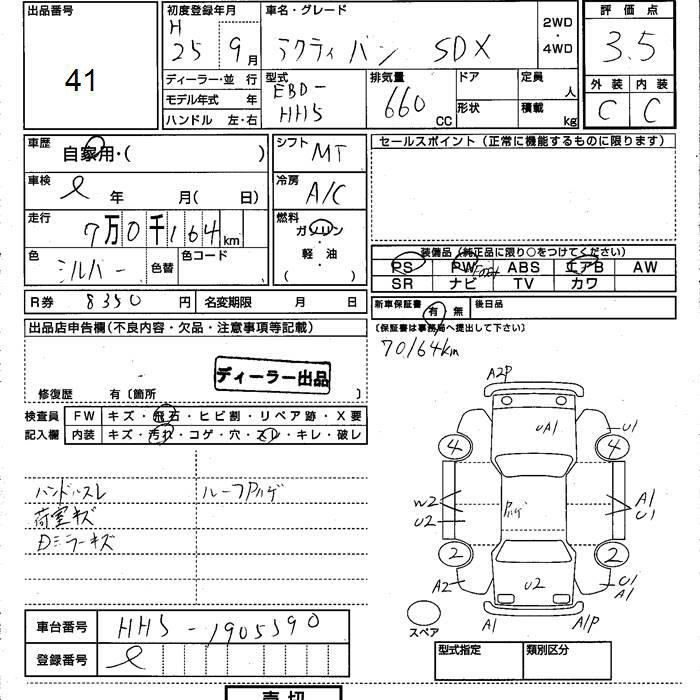 出品番号
41
初度登録年月
H
25 9月
車名・グレード
アクティバン SDX
2WD
・
4WD
評価点
3.5
外装 内装
C C
ディーラー・並 行
モデル年式 年
ハンドル 左・右
型式
EBD-
HH5
排気量
660 CC
ドア
形状
定員 人
積載 kg
車歴
自家用・( )
シフト
MT
セールスポイント (正常に機能するものに限ります)
車検
年 月( 日)
冷房
A/C
走行
7万0千164km
燃料
ガソリン
・
軽・油
( )
色
シルバー
色替
色コード
装備品 (純正品に限り○をつけてください)
PS PW Front ABS エアB AW
SR ナビ TV カワ
R券 8350 円
名変期限 月 日
新車保証書 有・無
後日品
(保証書は事務局へ提出して下さい)
70164km
出品店申告欄 (不良内容・欠品・注意事項等記載)
ディーラー出品
修復歴 有〔箇所 〕
検査員
記入欄
FW キズ・飛石・ヒビ割・リペア跡・X要
内装 キズ・汚れ・コゲ・穴・スレ・キレ・破レ
ハンドルスレ
ルーフPハゲ
荷室キズ
Dミラーキズ
A2P
UA1
U1
4
4
W2
U2
Pハゲ
A1
U1
2
2
A2
U2
U1
A1
A1
A1P
スペア
車台番号 HH5-1905390
登録番号
型式指定
類別区分
売切